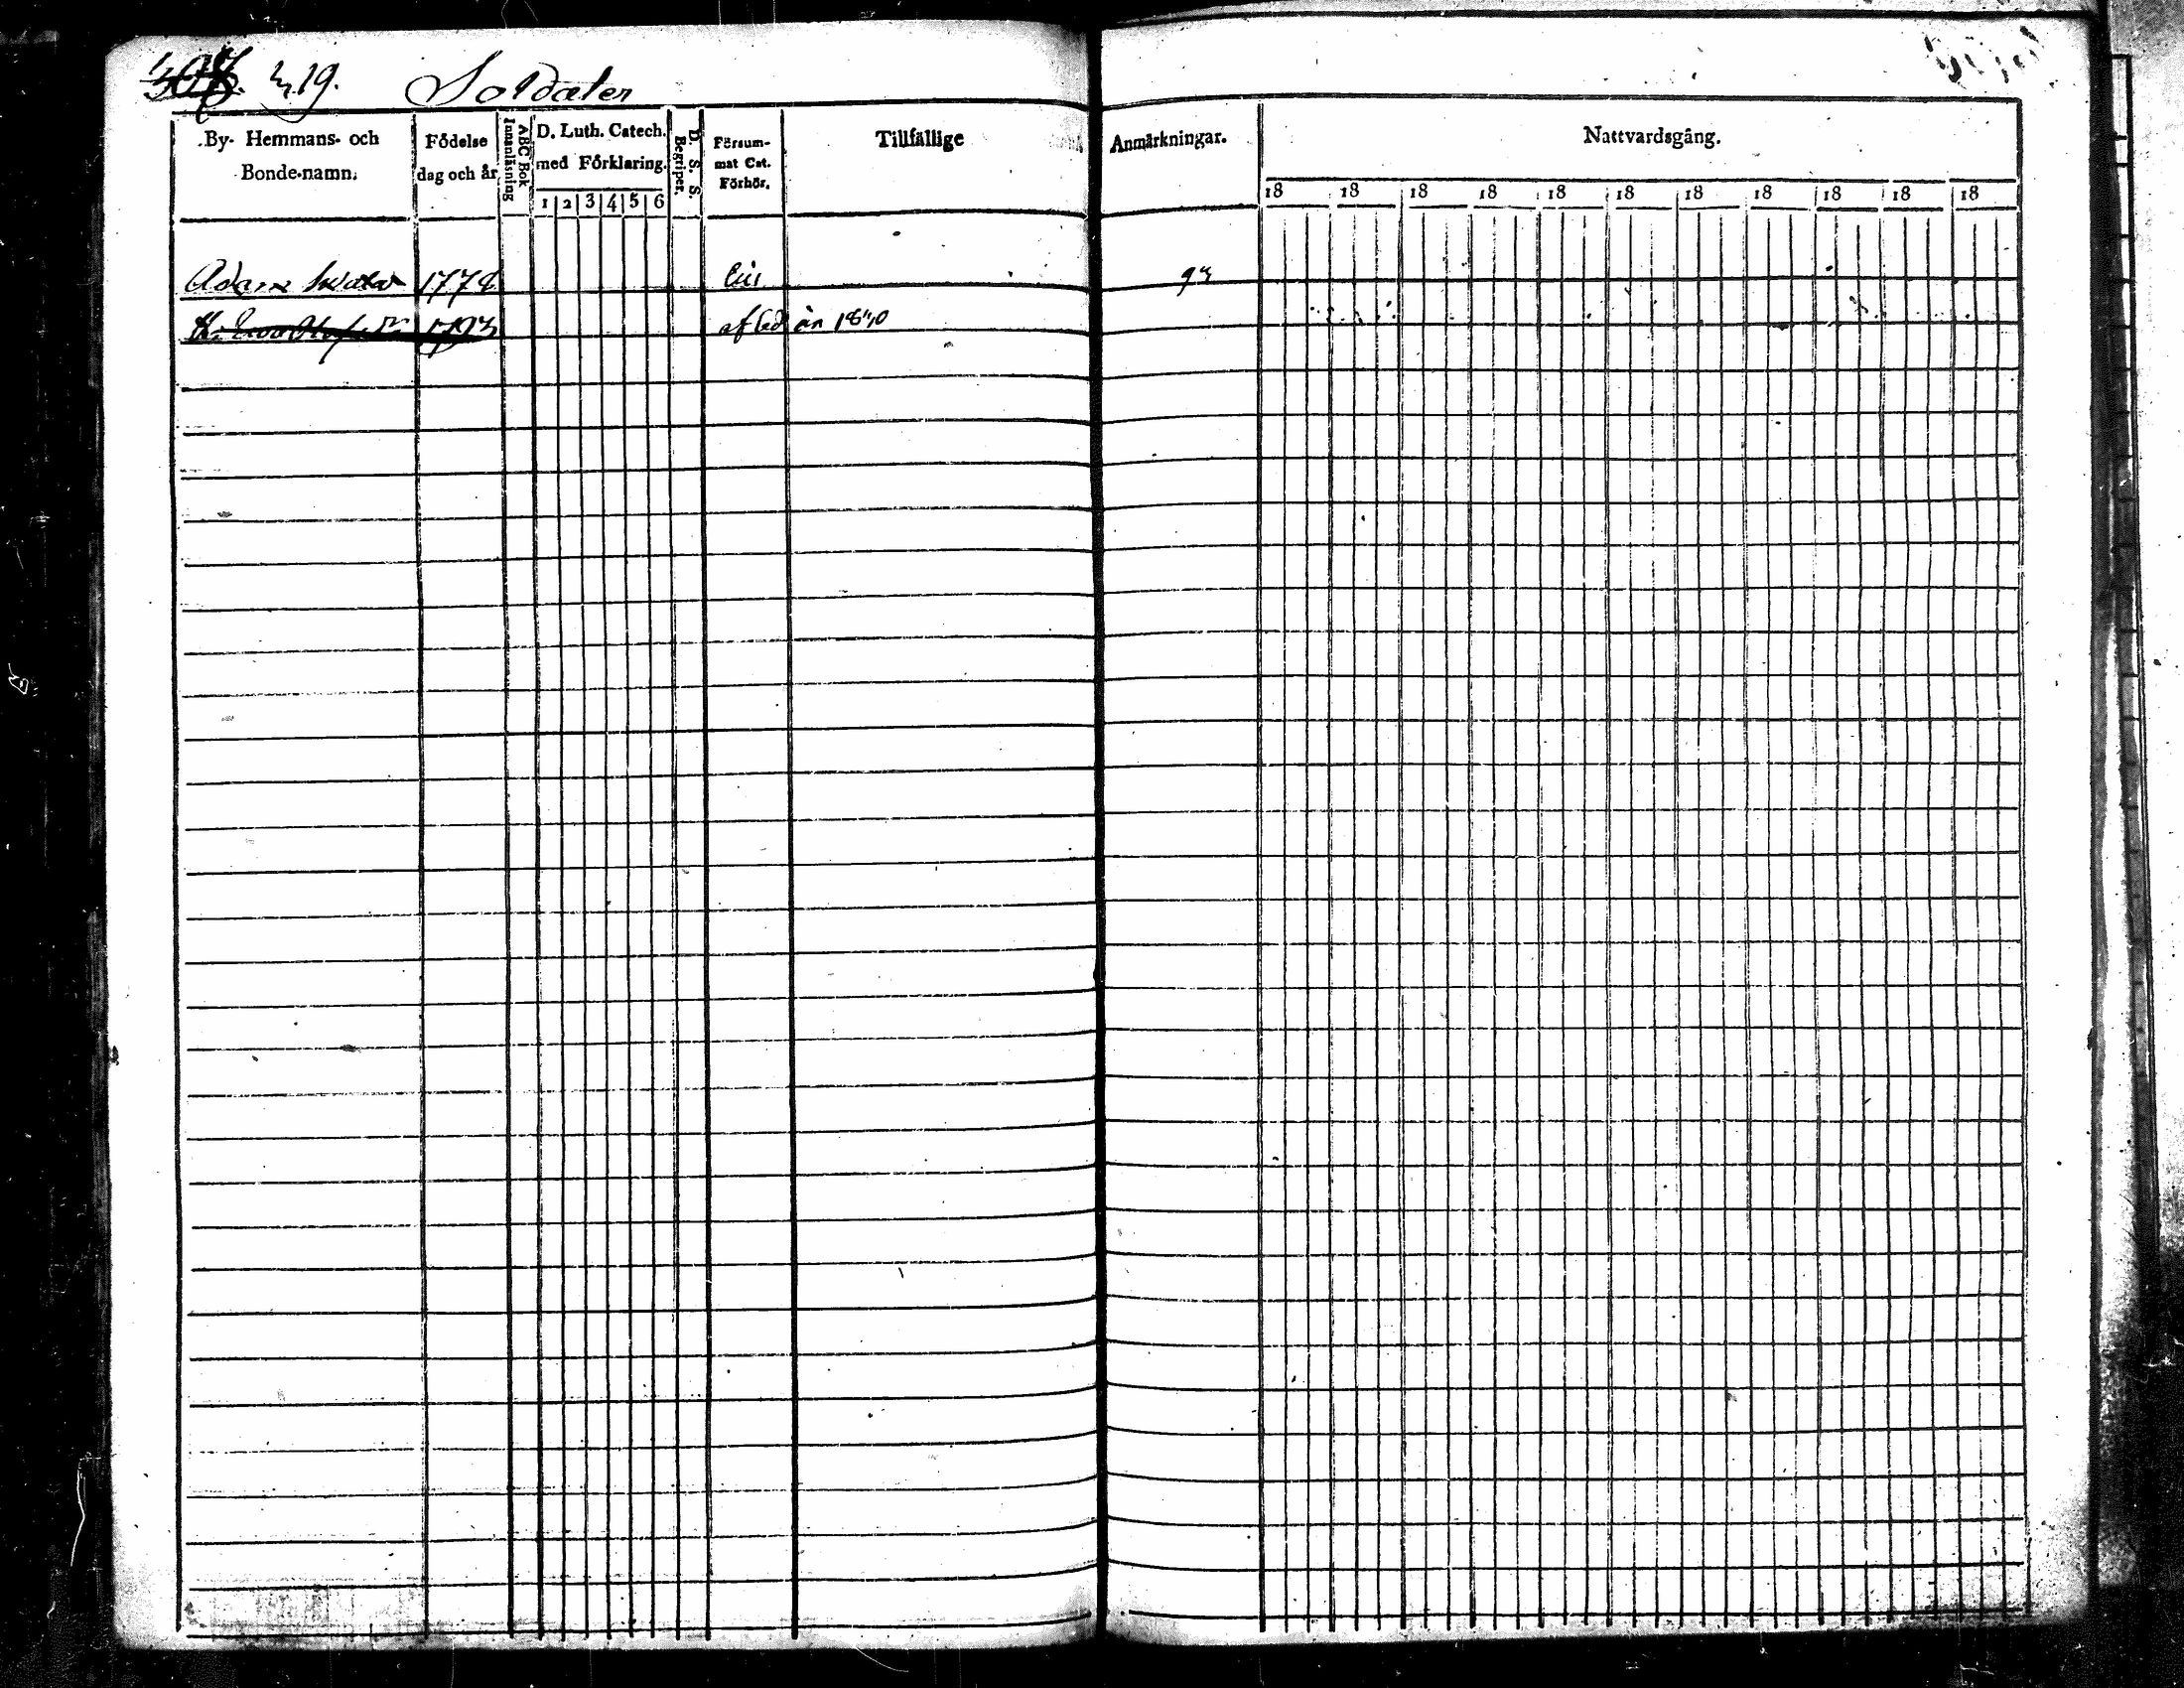 319. Soldater
By- Hemmans- och Bonde-namn.
Födelse dag och år
ABC Bok Innanläsning
D. Luth. Catech. med Förklaring.
1 2 3 4 5 6
D. S. S. Begriper.
Försum- mat Cat. Förhör.
Tillfällige
Anmärkningar.
Nattvardsgång.
18 18 18 18 18 18 18 18 18 18 18
Adam 1778
1793 afled år 1840